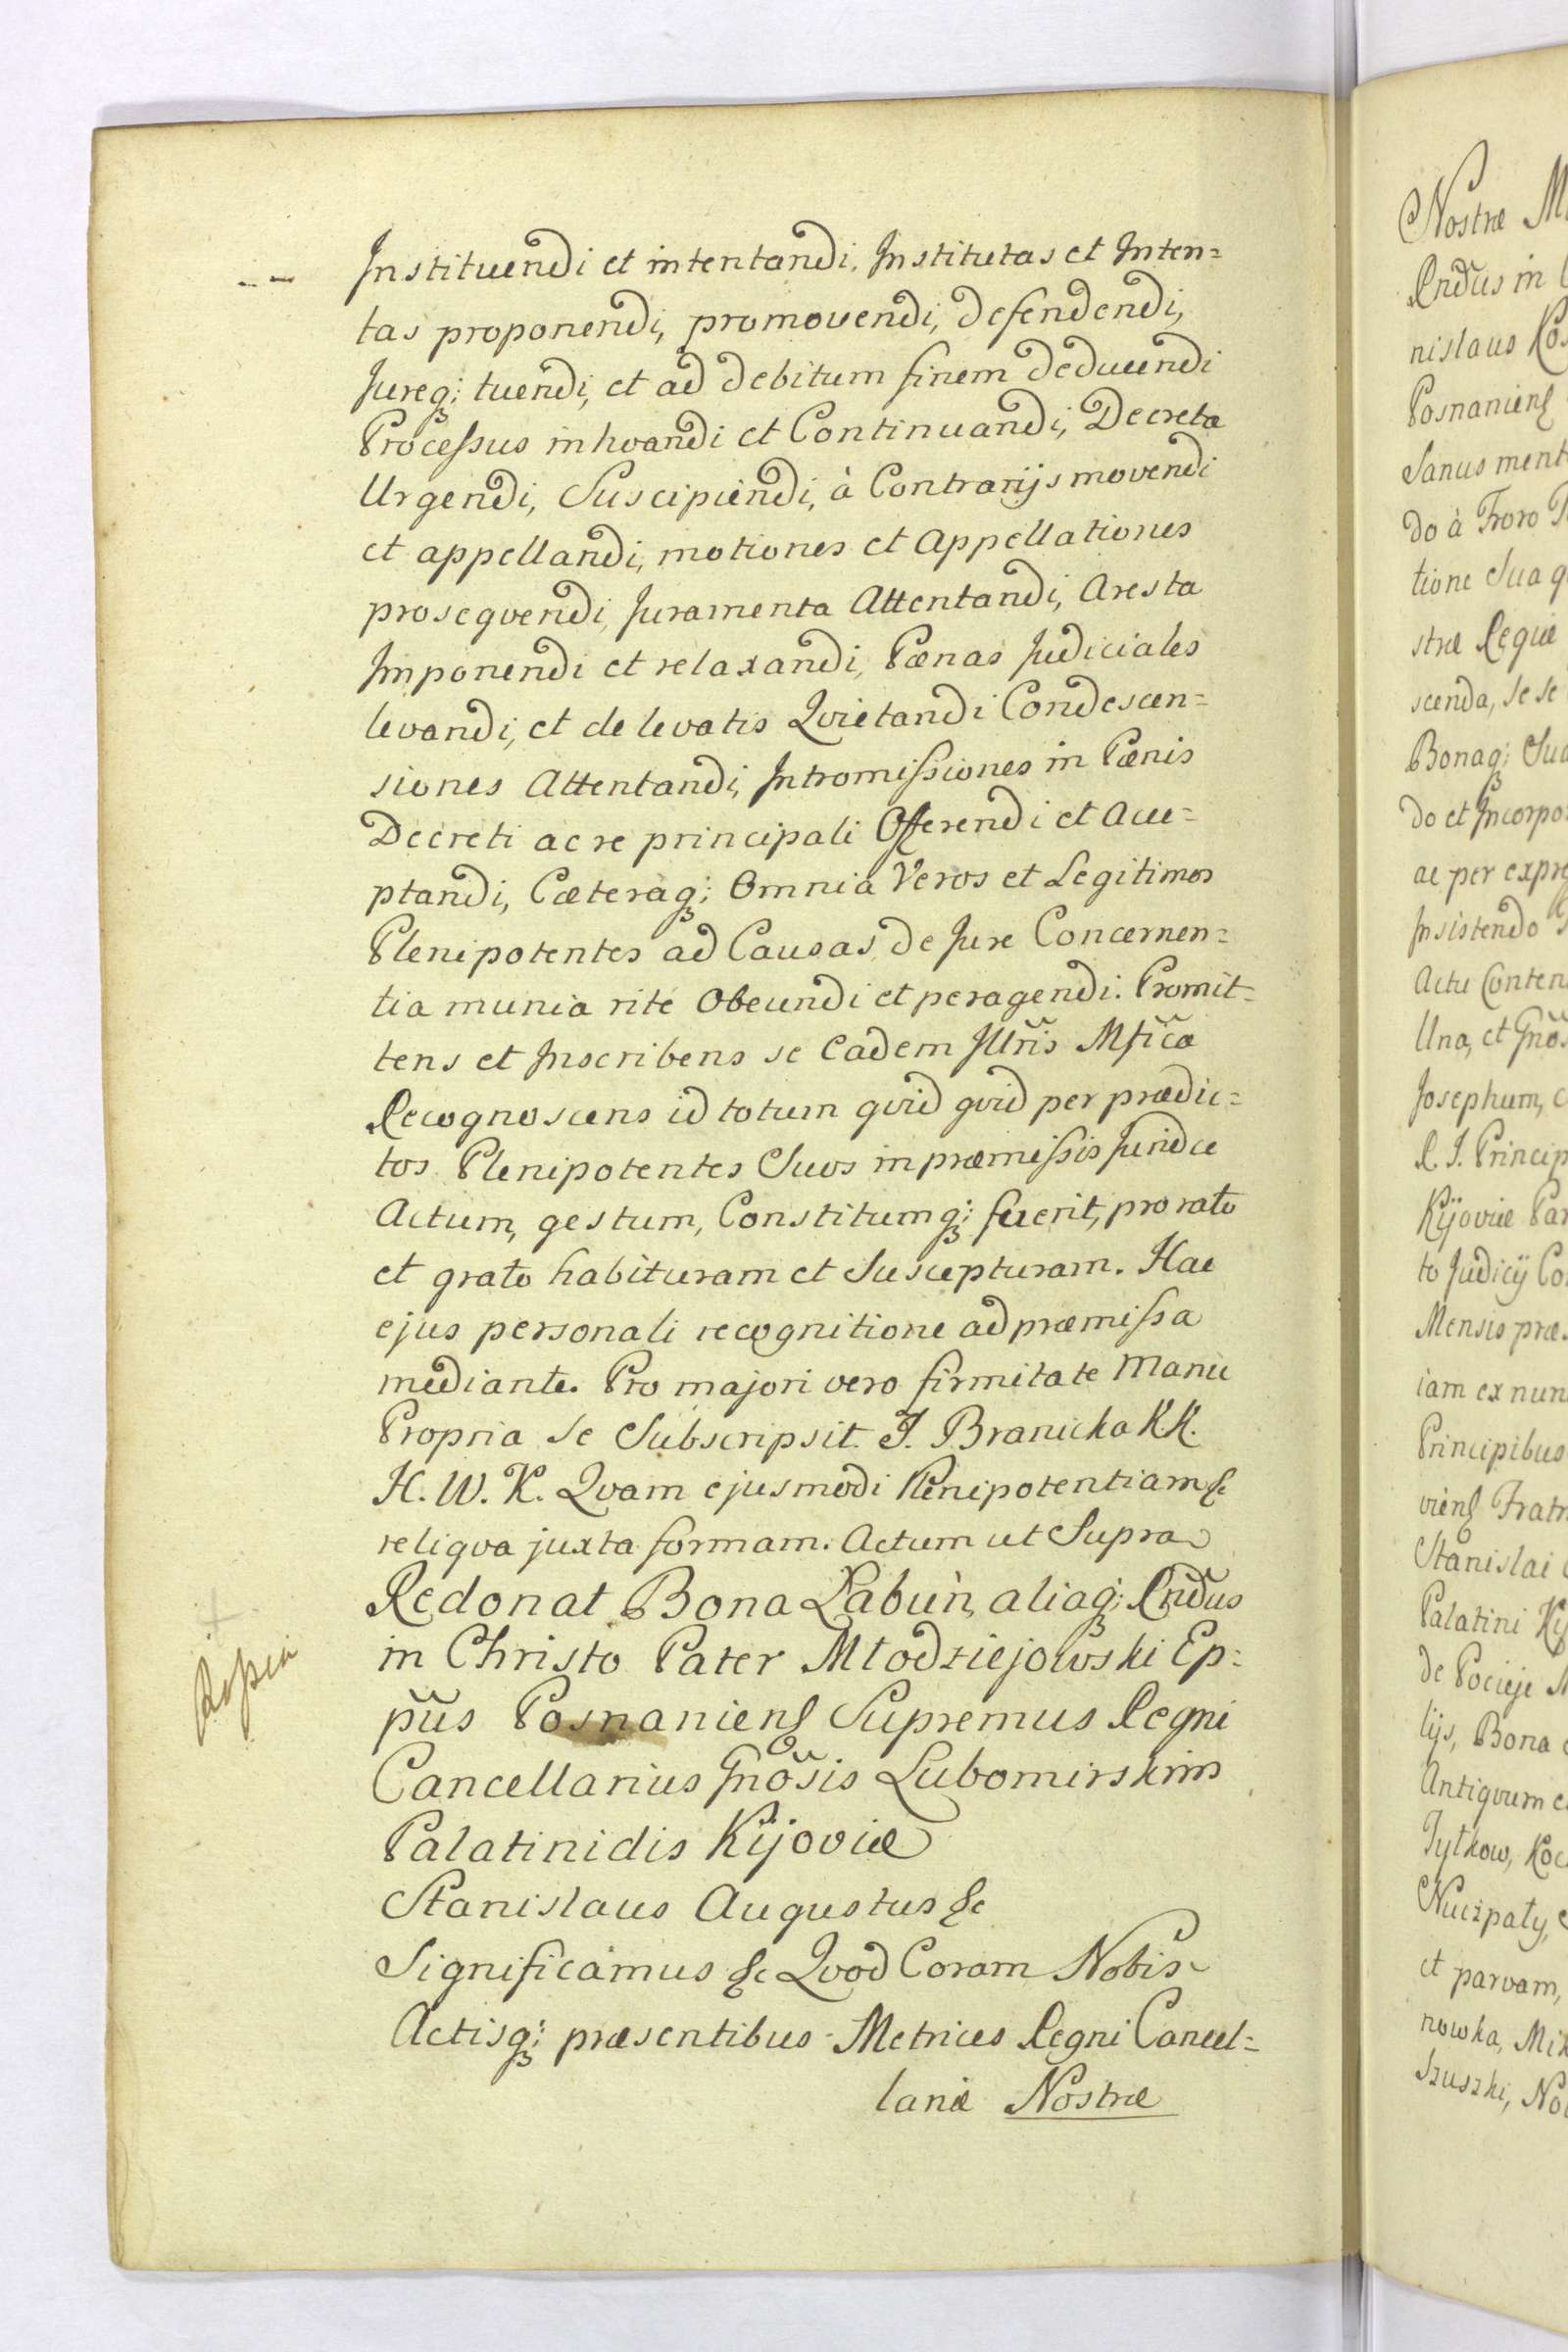 Instituendi et intentandi. Institutas et Inten=
tas proponendi, promovendi, defendendi,
Jureq; tuendi, et ad debitum finem deducendi
Processus inhoandi et Continuandi, Decreta
Urgendi, Suscipiendi, à Contrarijs movendi
et appellandi, motiones et Appellationes
proseqvendi, Juramenta Attentandi, Aresta
Imponendi et relaxandi, Pænas Judiciales
levandi, et de levatis Qvietandi Condescen=
siones Attentandi, Intromissiones in Pænis
Decreti ac re principali Offerendi et Acce=
ptandi, Cæteraq; Omnia Veros et Legitimos
Plenipotentes ad Causas de Jure Concernen=
tia munia rite Obeundi et peragendi. Promit=
tens et Inscribens se Eadem Illr̃is Mfic̃a
Recognoscens id totum qvid qvid per prædic=
tos Plenipotentes Suos in præmissis Juridce
Actum, gestum, Constitumq; fuerit, pro rato
et grato habituram et Suscepturam. Hac
ejus personali recognitione ad præmissa
mediante. Pro majori vero firmitate Manu
Propria se Subscripsit. I. Branicka KK.
H. W. K. Qvam ejusmodi Plenipotentiam &c
reliqva juxta formam. Actum ut Supra
Redonat Bona Łabuń, aliaq; Rñdus
in Christo Pater Młodziejowski Ep=
p̃us Posnaniens Supremus Regni
Cancellarius Gnõsis Lubomirskim
Palatinidis Kijoviæ
Stanislaus Augustus &c
Significamus &c Qvod Coram Nobis
Actisq; præsentibus Metrices Regni Cancel=
lariæ Nostræ
Rossia
Nostræ
Rñdus in
nislaus
Posnaniens
Sanus
do à Froro
tione Sua
stræ Regiæ
scenda, se se
Bonaq;
do et
ac per
Insistendo
Actu
Una, et
Josephum,
R. I.
Kijoviæ
to Judicij
Mensis
iam ex
Principibus
viens
Stanislai
Palatini
de Pocieje
lijs, Bona
Antiqvum
Tytkow,
et parvam,
nowka,